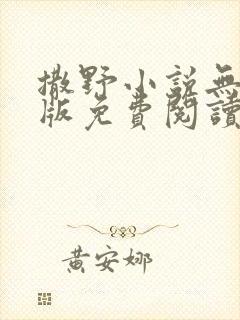 撒野小説無
版免費閱讀
黃安娜